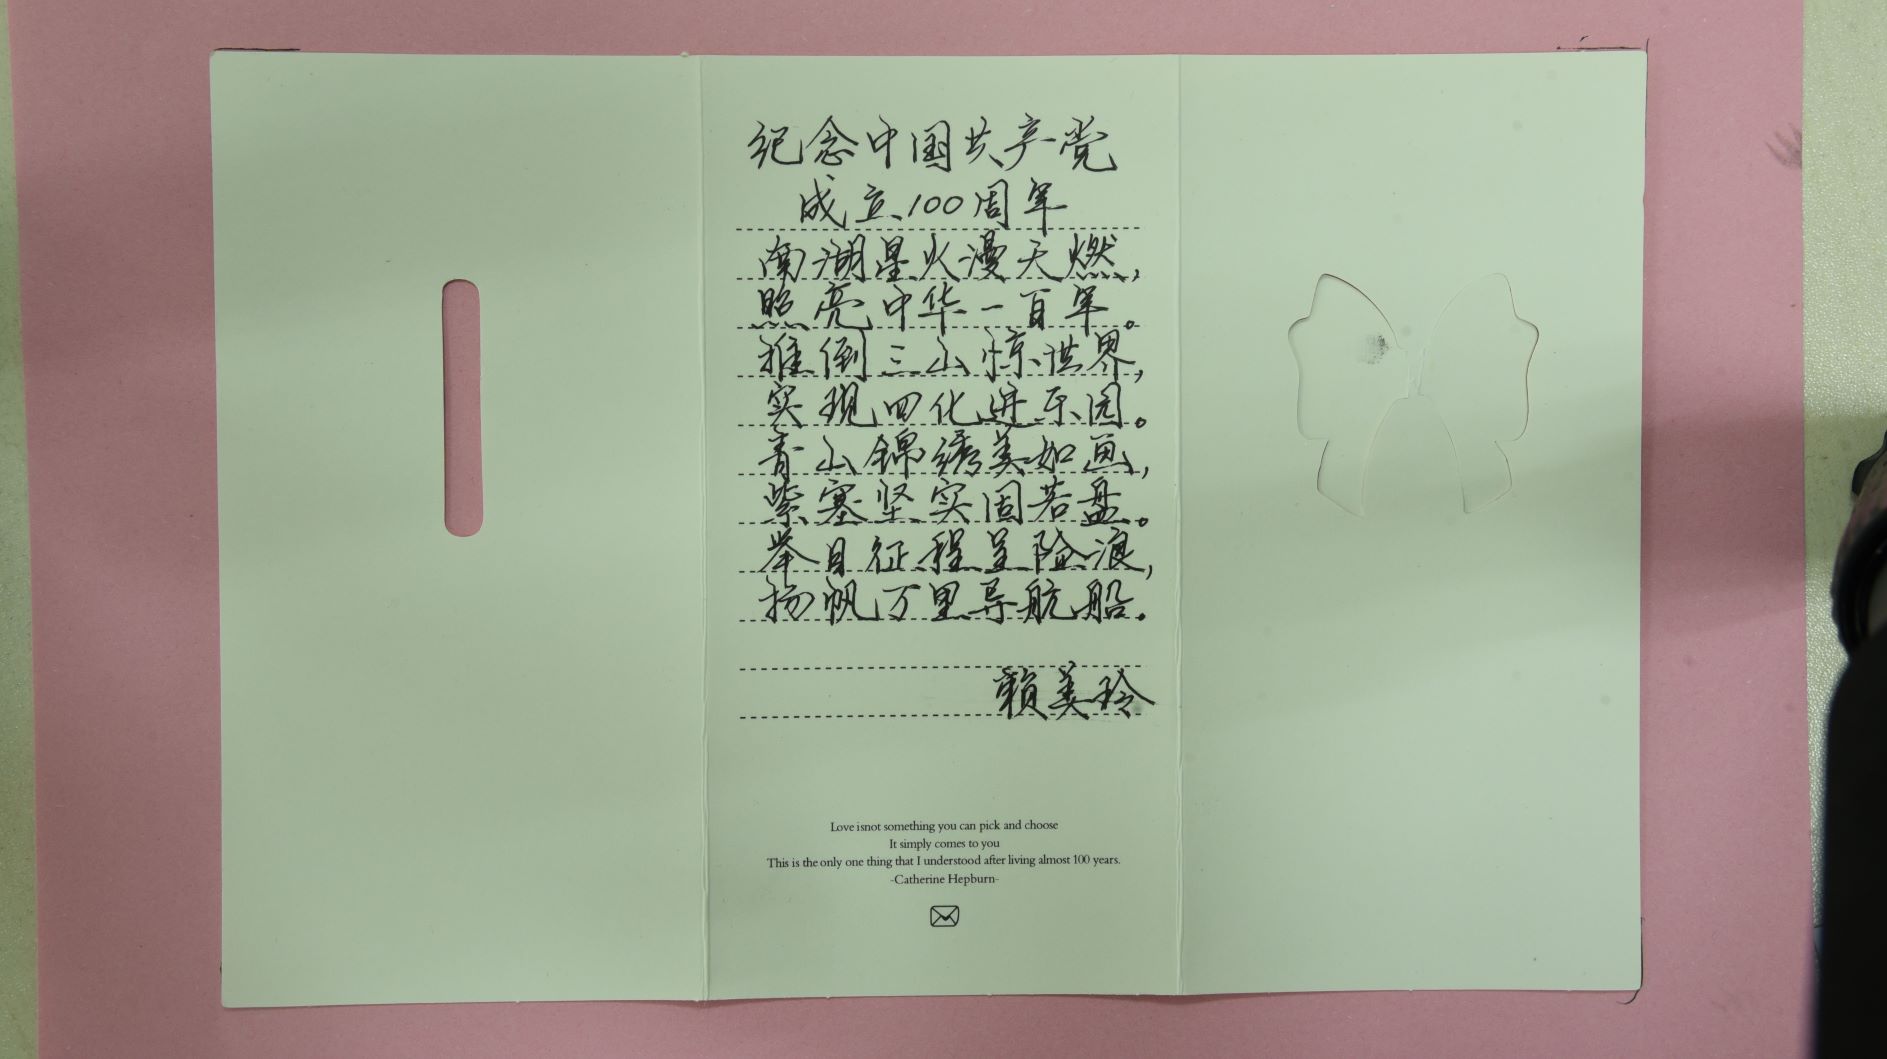 纪念中国共产党
成立100周年
南湖星火漫天燃，
照亮中华一百年。
推倒三山惊世界，
实现四化进乐园。
青山锦绣美如画，
紫塞坚实固若盘。
举目征程呈险浪，
扬帆万里导航船。
赖美玲
Love isnot something you can pick and choose
It simply comes to you
This is the only one thing that I understood after living almost 100 years.
-Catherine Hepburn-